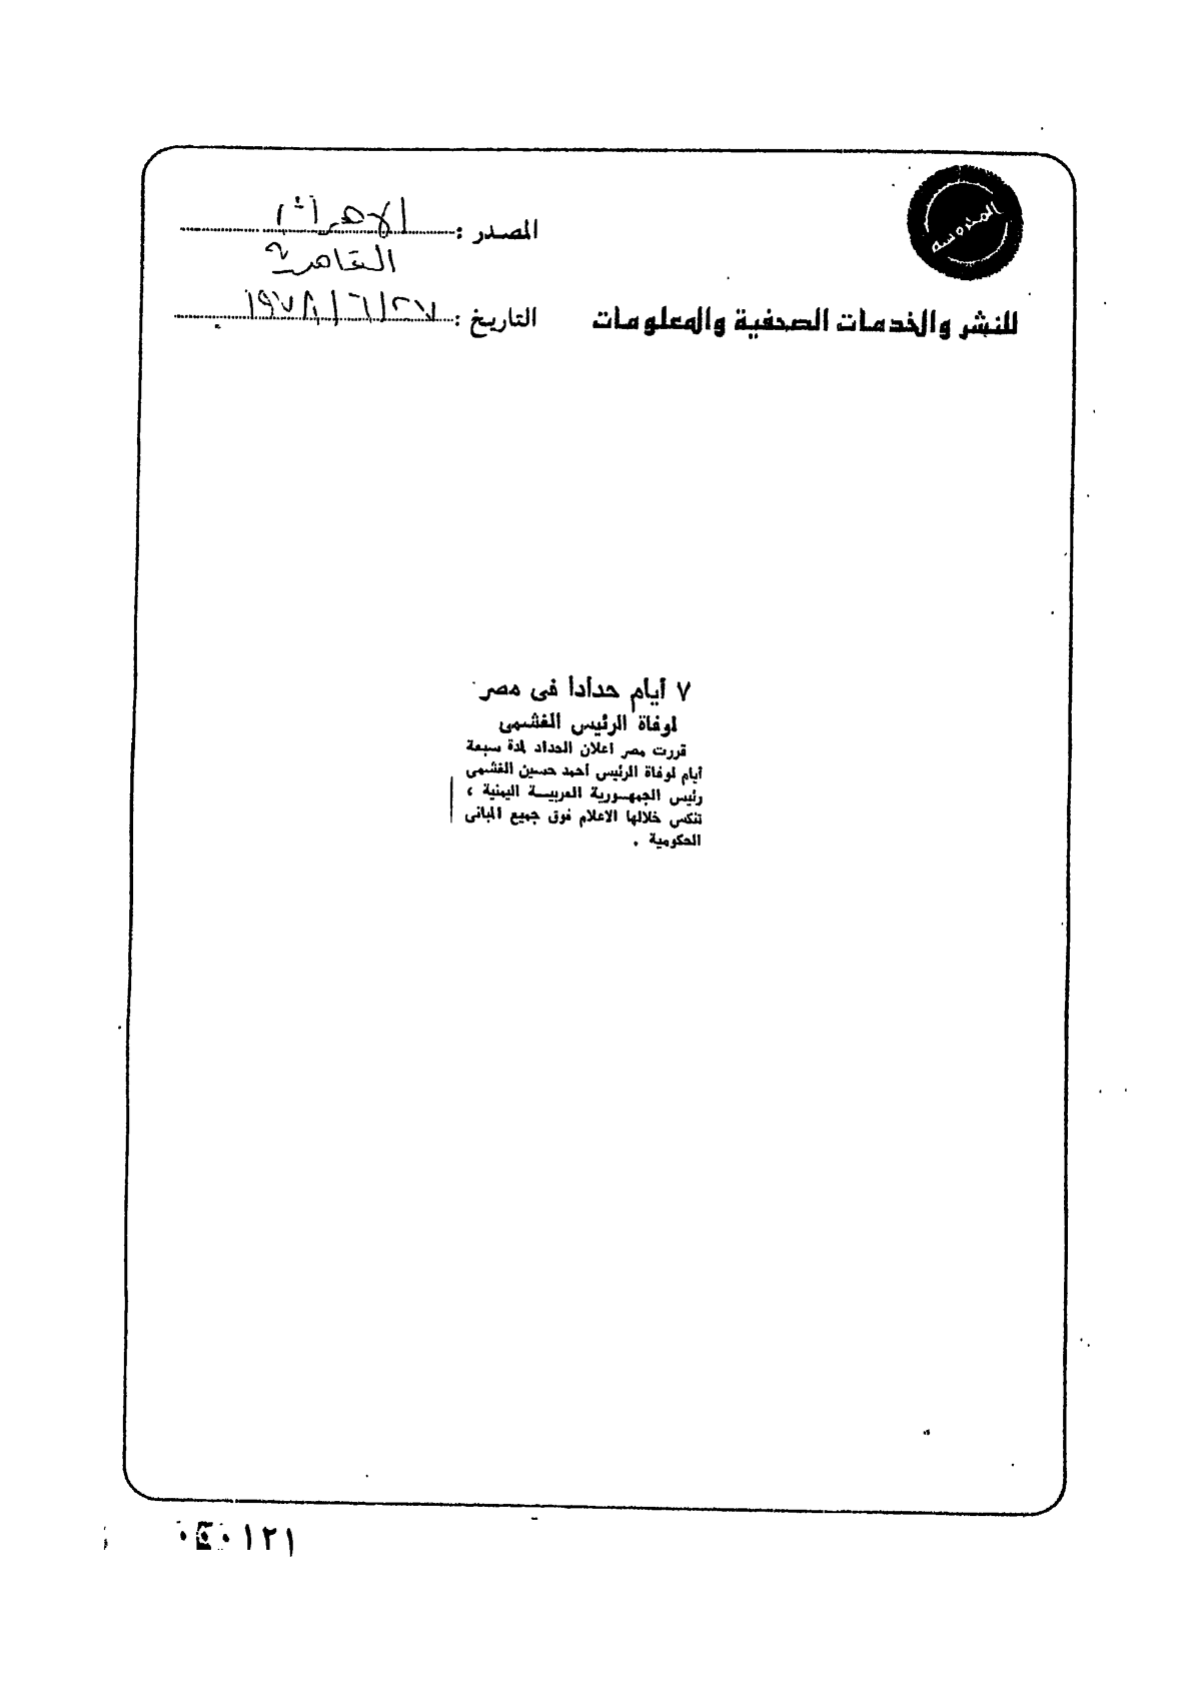 المصدر : الاهرام
القاهرية
للنشر والخدمات الصحفية والمعلومات
التاريخ : ٢٧/٦/١٩٧٨
٧ أيام حدادا فى مصر
لوفاة الرئيس الغشمى
قررت مصر اعلان الحداد لمدة سبعة
أيام لوفاة الرئيس أحمد حسين الغشمى
رئيس الجمهورية العربيــة اليمنية ،
تنكس خلالها الاعلام فوق جميع المبانى
الحكومية .